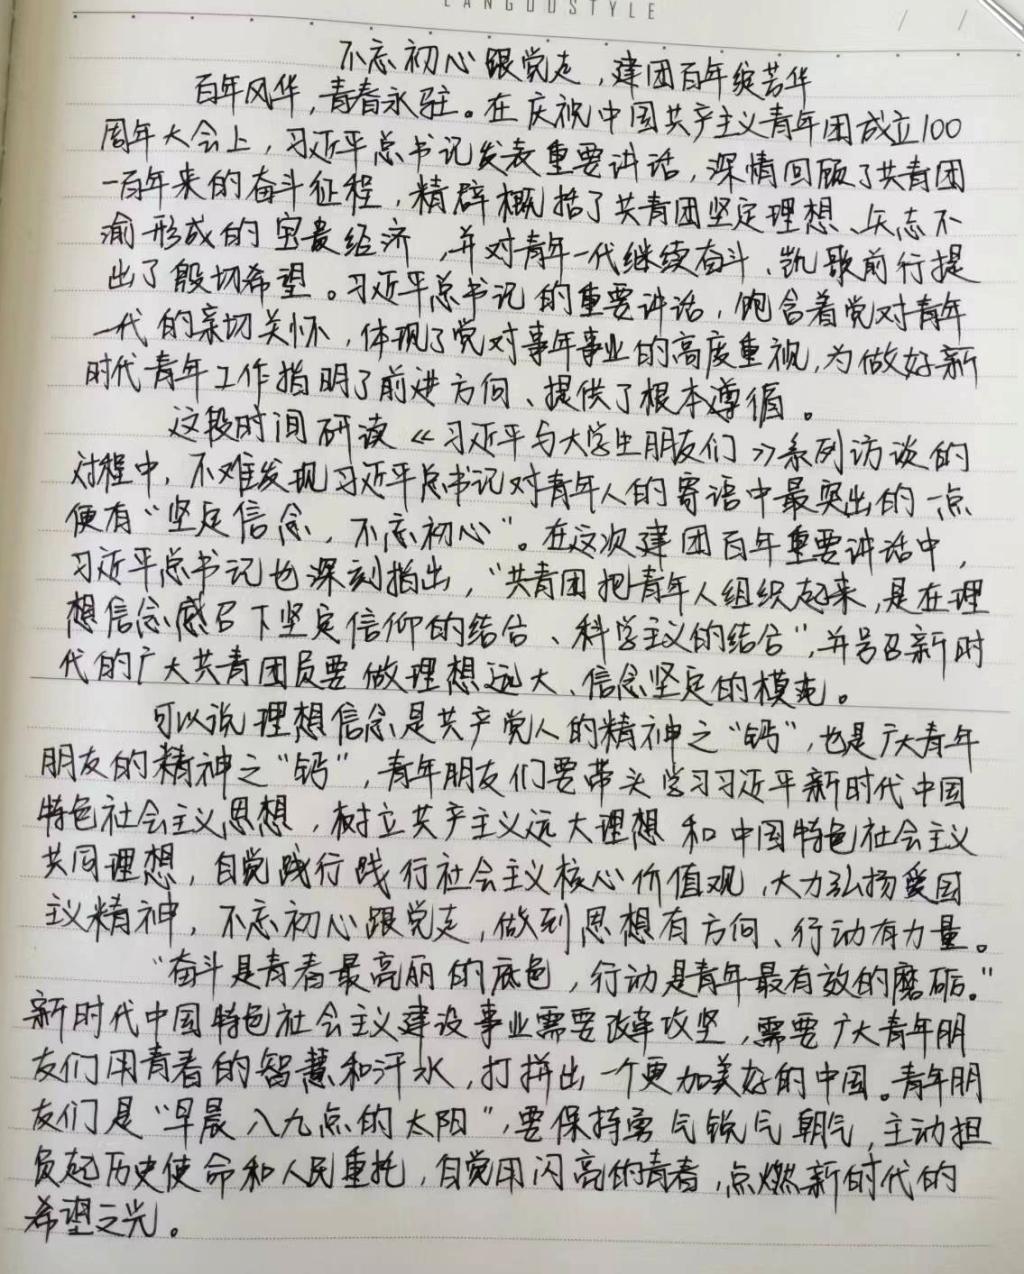 LANGDUSTYLE
不忘初心跟党走，建团百年绽芳华
百年风华，青春永驻。在庆祝中国共产主义青年团成立100
周年大会上，习近平总书记发表重要讲话，深情回顾了共青团
一百年来的奋斗征程，精辟概括了共青团坚定理想、矢志不
渝形成的宝贵经济，并对青年一代继续奋斗、凯歌前行提
出了殷切希望。习近平总书记的重要讲话，饱含着党对青年
一代的亲切关怀，体现了党对事年事业的高度重视，为做好新
时代青年工作指明了前进方向、提供了根本遵循。
这段时间研读《习近平与大学生朋友们》系列访谈的
过程中，不难发现习近平总书记对青年人的寄语中最突出的一点
便有“坚定信念，不忘初心”。在这次建团百年重要讲话中，
习近平总书记也深刻指出，“共青团把青年人组织起来，是在理
想信念感召下坚定信仰的结合、科学主义的结合”，并号召新时
代的广大共青团员要做理想远大、信念坚定的模范。
可以说理想信念是共产党人的精神之“钙”，也是广大青年
朋友的精神之“钙”，青年朋友们要带头学习习近平新时代中国
特色社会主义思想，树立共产主义远大理想和中国特色社会主义
共同理想，自觉践行践行社会主义核心价值观，大力弘扬爱国
主义精神，不忘初心跟党走，做到思想有方向、行动有力量。
“奋斗是青春最亮丽的底色，行动是青年最有效的磨砺。”
新时代中国特色社会主义建设事业需要改革攻坚，需要广大青年朋
友们用青春的智慧和汗水，打拼出一个更加美好的中国。青年朋
友们是“早晨八九点的太阳”，要保持勇气锐气朝气，主动担
负起历史使命和人民重托，自觉用闪亮的青春，点燃新时代的
希望之光。